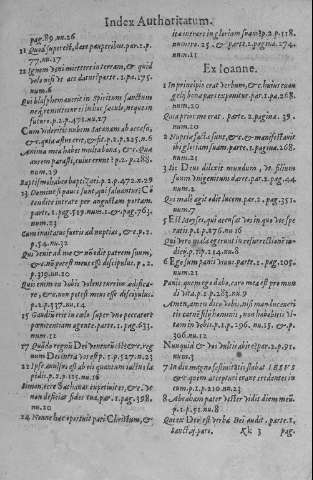 Index Authoritatum.
pag.89.nu.26
11 Quod superest, date pauperibus.par.2.p.
77.nu.17
12 Ignem veni mittere in terram, & quid
volo nisi vt accendatur parte.1.pa.175.
num.6
Qui blasphemauerit in Spiritum sanctum
neq; remittetur ei in hoc sæculo, neque in
futuro.p.2.p.471.nu.27
Cum videritis nubem
& c.quia
Anima mea habes multa bona, & c. Qua
autem parasti, cuius erunt? p.2.p.288.
num.29
Baptismo habeo baptizari.p.2.p.472.n.29
13 Domine si pauci sunt, qui saluantur? Cõ
tendite intrare per angustam portam.
parte.1.pag.519.num.1.& pag.763.
num.23
Cum inuitatus fueris ad nuptias, & c.p.2.
p.54.nu.32
Qui venit ad me & nõ odit patrem suum,
& c. nõ potest meus esse discipulus.p.2.
p.319.nu.20
Quis enim ex vobis volens turrim ædifica-
re, & c. non potest meus esse discipulus.
p.2.p.537.nu.14
15 Gaudium erit in cælo super vno peccatore
pœnitentiam agente.parte.1.pag.631.
num.12
17 Quãdo regnũ Dei
num Dei intra vos est p.1.p.527.nu.23
22 Ipse auulsus est ab eis quantum iactus la
pidis.p.2.p.125.nu.16
Simon, ecce Sathanas expetiuit, & c. Vt
non deficiat fides tua.par.1.pag.398.
nu.20
24 Nonne hæc oportuit pati Christum, &
ita intrare in gloriam suam? p.2.p.518.
numero.25.& parte.2.pagina.274.
num.11
Ex Ioanne.
1 In principio erat verbum, & c. huius euan
gelij bona pars exponitur.par.1.pa.268.
num.20
Quia prior me erat. parte.2.pagina.39.
num.20
2 Vt pria facta sunt, & c. & manifestauit
ibi gloriam suam.parte.1.pagina.268.
num.21
3 Sic Deus dilexit mundum, vt filium
suum vnigenitum daret.par.2.pag.44.
num.2
Qui male agit odit lucem.par.2.pag.351.
num.7
5 Est Moyses, qui accusat vos in quo vos spe
ratis.p.1.p.876.nu.16
Qui vero mala egerunt in resurrectionẽ iu-
dicij.p.1.p.214.nu.8
6 Ego sum panis viuus.parte.1.pag.205.
num.21
Panis, quem ego dabo, caro mea est pro mun
di vita.p.2.p.283.nu.9
Amen, amen dico vobis, nisi manducaueri
tis carnẽ filij hominis, non habebitis vi-
tam in vobis.p.1.p.296.nu.15.& p.
306.nu.12
Nunquid & vos vultis abire? par.2.p.91.
num.3
7 In die magno festiuitatis stabat IESVS
& c. quem accepturi erant credentes in
eum.p.1.p.210.nu.23
8 Abraham pater vester vidit diem meũ.
p.1.p.51.nu.8
Qui ex Deo est verba Dei audit.parte.1.
Sanctuar.pars.
Kk 3
pag.